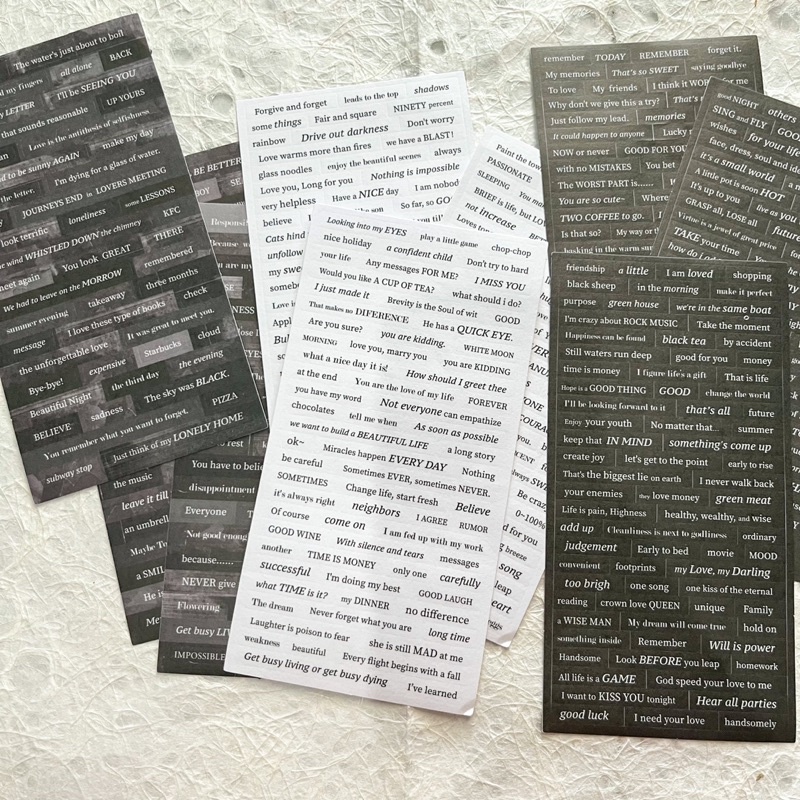 The water's just about to boil
my fingers all alone BACK
LETTER I'll be SEEING YOU
that sounds reasonable UP YOURS
Love is the antithesis of selfishness
to be sunny AGAIN make my day
the letter. I'm dying for a glass of water.
JOURNEYS END in LOVERS MEETING
look terrific loneliness some LESSONS
wind WHISTLED DOWN the chimney KFC
meet again You look GREAT THERE
We had to leave on the MORROW remembered
summer evening takeaway three months
message I love these type of books check
the unforgettable love It was great to meet you.
Bye-bye! expensive Starbucks cloud
Beautiful Night the third day the evening
BELIEVE sadness The sky was BLACK.
You remember what you want to forget. PIZZA
subway stop Just think of my LONELY HOME
the music
leave it till
an umbrell
Maybe
a SMIL
He is
BE BETTER
BOY
Because
You have to belie
disappointment
Everyone
Not good enoug
because......
NEVER give
Flowering
Get busy LIV
IMPOSSIBLE
Forgive and forget leads to the top shadows
some things Fair and square NINETY percent
rainbow Drive out darkness Don't worry
Love warms more than fires we have a BLAST!
glass noodles enjoy the beautiful scenes always
Love you, Long for you Nothing is impossible
very helpless Have a NICE day I am nobod
believe So far, so GO
Cats hind
unfollow
my swe
someb
Love is
Paint the tow
PASSIONATE
SLEEPING You ma
BRIEF is life, but LOV
not increase
Be craz
0~100%
breeze
song
Looking into my EYES play a little game chop-chop
nice holiday a confident child Don't try to hard
your life Any messages FOR ME? I MISS YOU
Would you like A CUP OF TEA? what should i do?
I just made it Brevity is the Soul of wit GOOD
That makes no DIFERENCE He has a QUICK EYE.
Are you sure? you are kidding. WHITE MOON
MORNING love you, marry you you are KIDDING
what a nice day it is! How should I greet thee
at the end You are the love of my life FOREVER
you have my word Not everyone can empathize
chocolates tell me when As soon as possible
we want to build a BEAUTIFUL LIFE a long story
ok~ Miracles happen EVERY DAY Nothing
be careful Sometimes EVER, sometimes NEVER.
SOMETIMES Change life, start fresh Believe
it's always right neighbors I AGREE RUMOR
Of course come on I am fed up with my work
GOOD WINE With silence and tears messages
another TIME IS MONEY only one carefully
successful I'm doing my best GOOD LAUGH
what TIME is it? my DINNER no difference
The dream Never forget what you are long time
Laughter is poison to fear she is still MAD at me
weakness beautiful Every flight begins with a fall
Get busy living or get busy dying I've learned
remember TODAY REMEMBER forget it.
My memories That's so SWEET saying goodbye
To love My friends I think it WOR for me
Why don't we give this a try? That's
Just follow my lead. memories
It could happen to anyone Lucky
NOW or never GOOD FOR YO
with no MISTAKES You bet
The WORST PART is......
You are so cute~ Where
TWO COFFEE to go.
Is that so? My way or t
looking in the warm sun
good NIGHT others
SING and FLY GOO
wishes for your life
face, dress, soul and ide
it's a small world
A little pot is soon HOT
It's up to you live as you
GRASP all, LOSE all future
Virtue is a jewel of great price for
TAKE your time You
how do I
friendship a little I am loved shopping
black sheep in the morning make it perfect
purpose green house we're in the same boat
I'm crazy about ROCK MUSIC Take the moment
Happiness can be found black tea by accident
Still waters run deep good for you money
time is money I figure life's a gift That is life
Hope is a GOOD THING GOOD change the world
I'll be looking forward to it that's all future
Enjoy your youth No matter that... summer
keep that IN MIND something's come up
create joy let's get to the point early to rise
That's the biggest lie on earth I never walk back
your enemies they love money green meat
Life is pain, Highness healthy, wealthy, and wise
add up Cleanliness is next to godliness ordinary
judgement Early to bed movie MOOD
convenient footprints my Love, my Darling
too brigh one song one kiss of the eternal
reading crown love QUEEN unique Family
a WISE MAN My dream will come true hold on
something inside Remember Will is power
Handsome Look BEFORE you leap homework
All life is a GAME God speed your love to me
I want to KISS YOU tonight Hear all parties
good luck I need your love handsomely